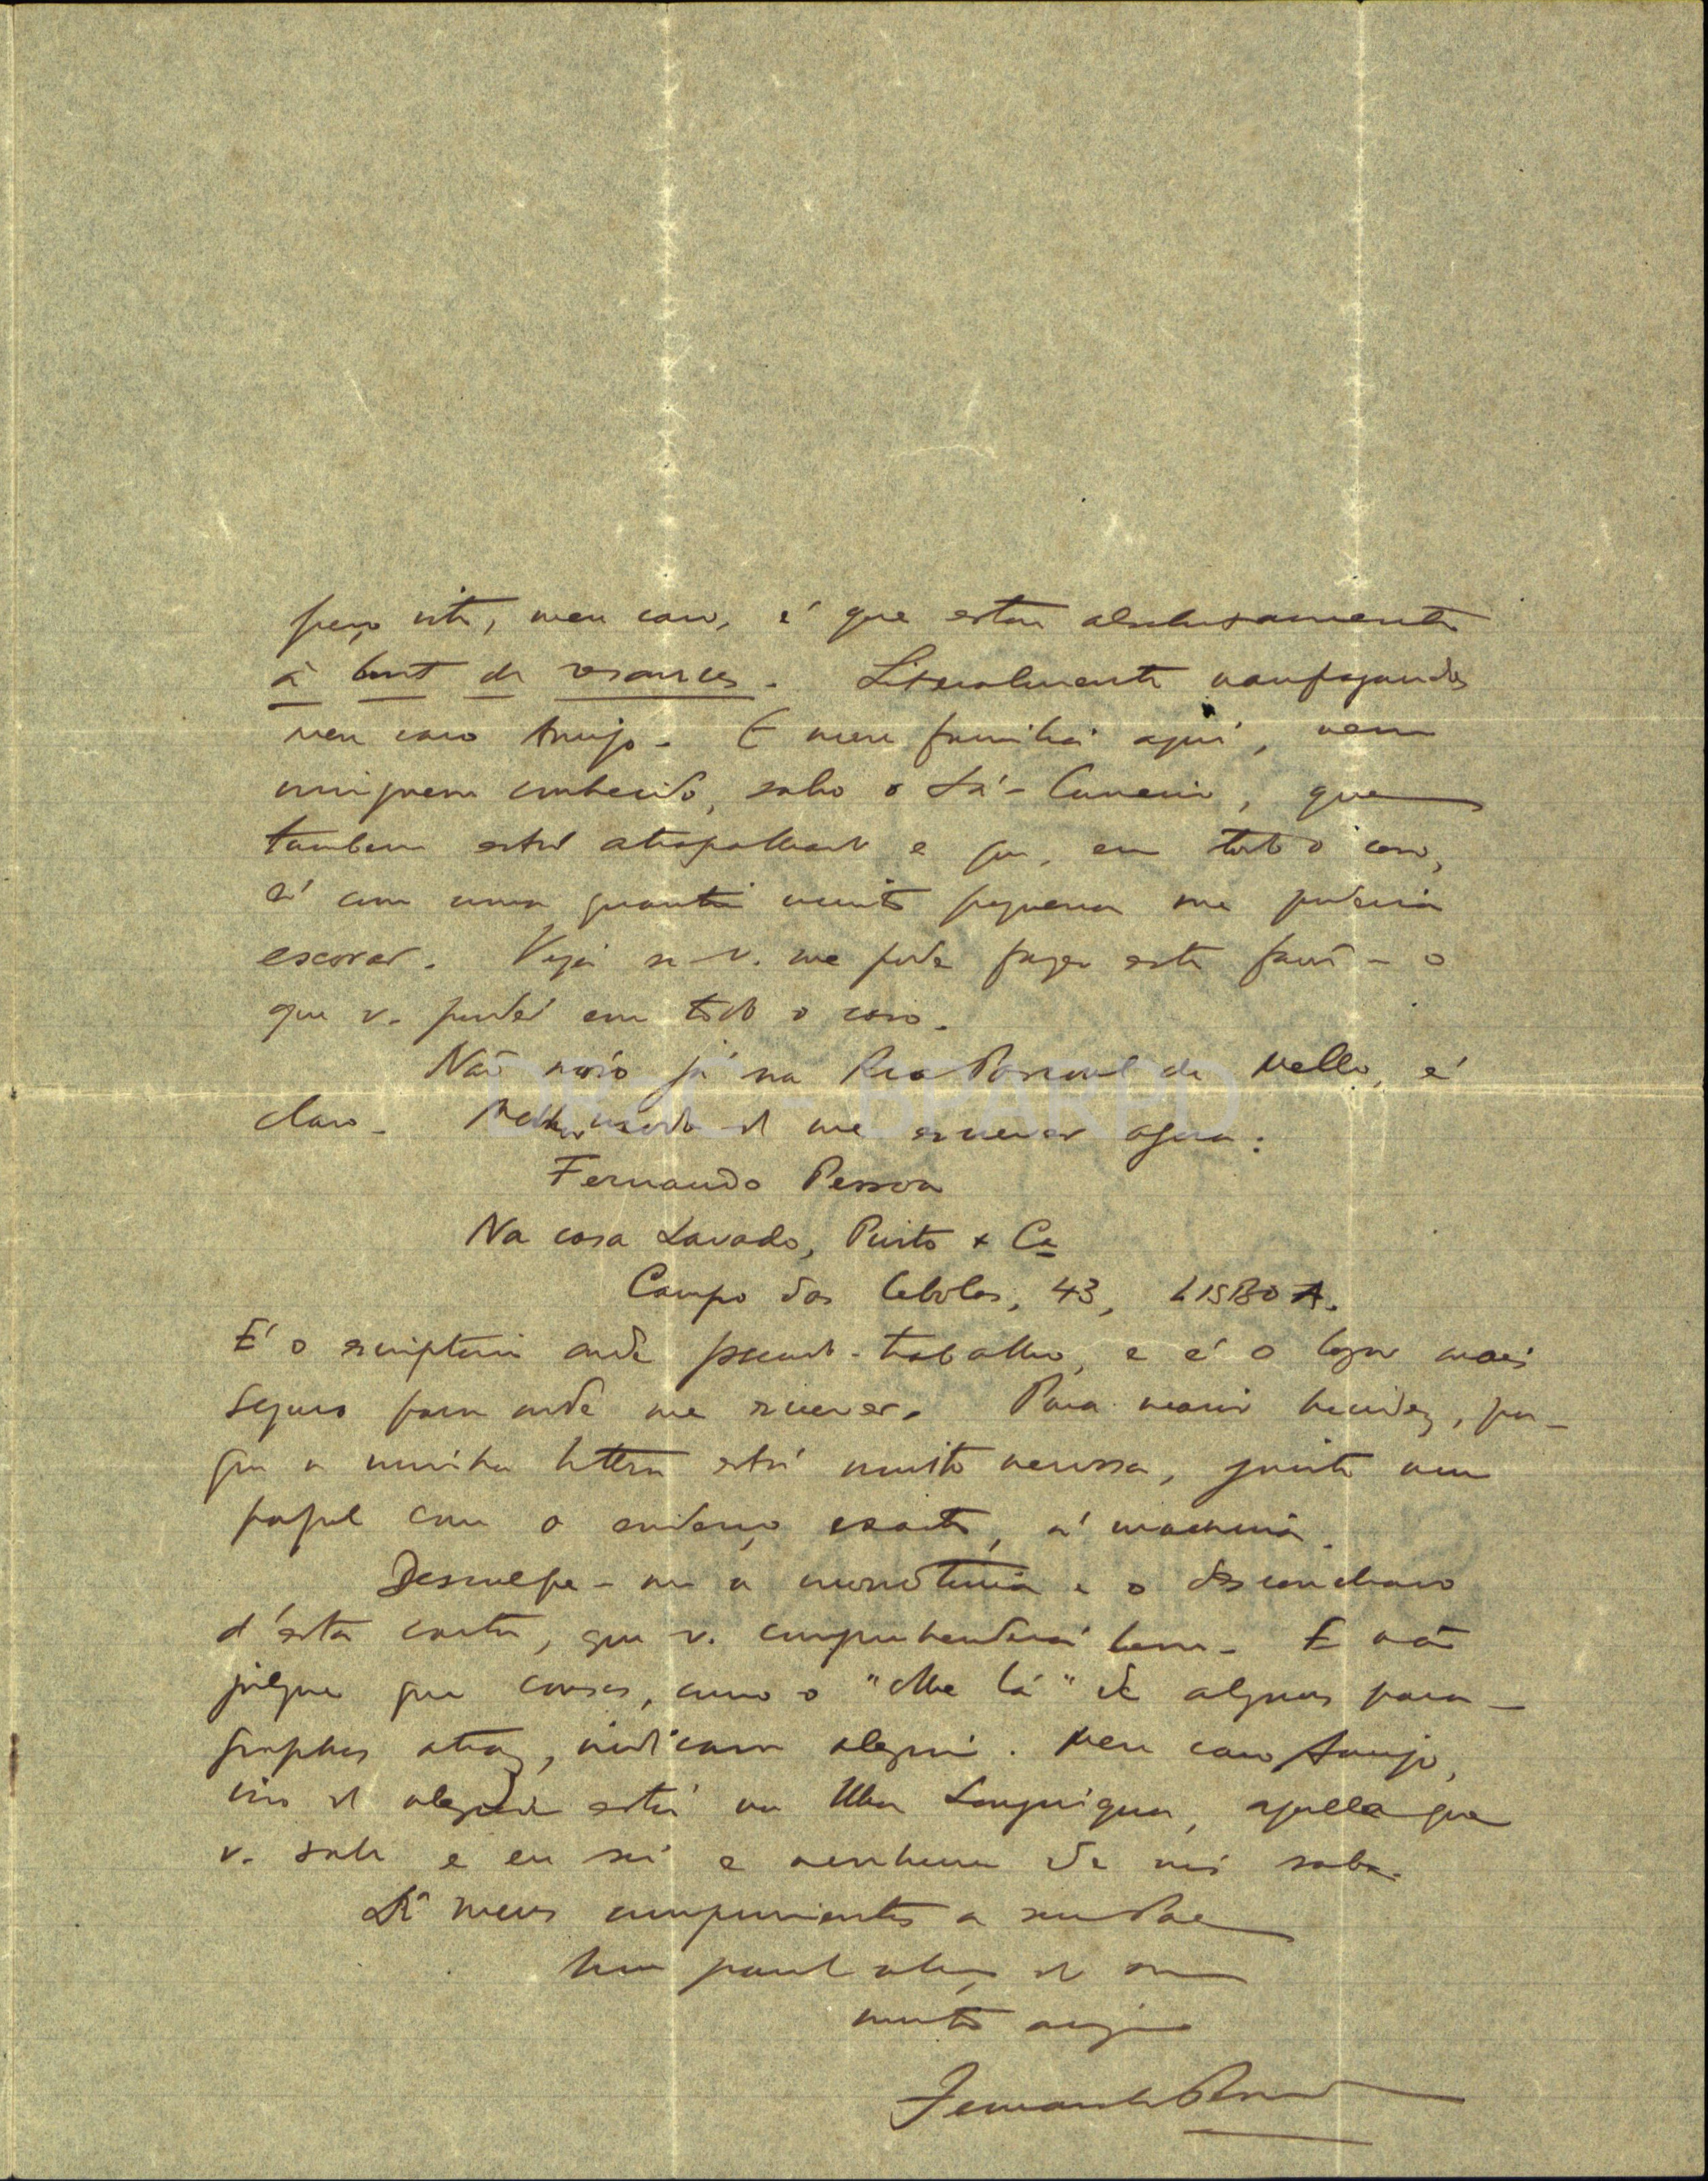 peço isto, meu caro, é que estou absolutamente
à bout de resources. Literalmente naufragando,
meu caro Araujo. E meu familia aqui, nem
ninguem conhecido, salvo o Sá-Carneiro, que
tambem está atrapalhado e que, em todo o caso,
só com uma quantia muito pequena me poderia
escorar. Veja se v. me pode fazer este favôr - o
que v. puder em todo o caso.
Não móro já na Rua Pascoal de Mello, é
claro. Melhor modo de me escrever agora:
Fernando Pessoa
Na casa Lavado, Pinto & Cª
Campo das Cebolas, 43, LISBOA.
É o escriptorio onde presente trabalho, e é o logar mais
seguro para onde me escrever. Para maior lucidez, por-
que a minha lettra está muito nervosa, junto um
papel com o endereço exacto, á machina.
Desculpe-me a monotonia e o desconchavo
d'esta carta, que v. comprehenderá bem. E não
julgue que cousas, como o "olhe lá" de alguns para-
graphos atraz, indicam alegria. Meu caro Araujo,
isso de alegria está na Ilha Longinqua, aquella que
v. sabe e eu sei e nenhum de nós sabe.
Dê meus cumprimentos a seu Pae
Um grande abraço do seu
muito amigo
Fernando Pessoa